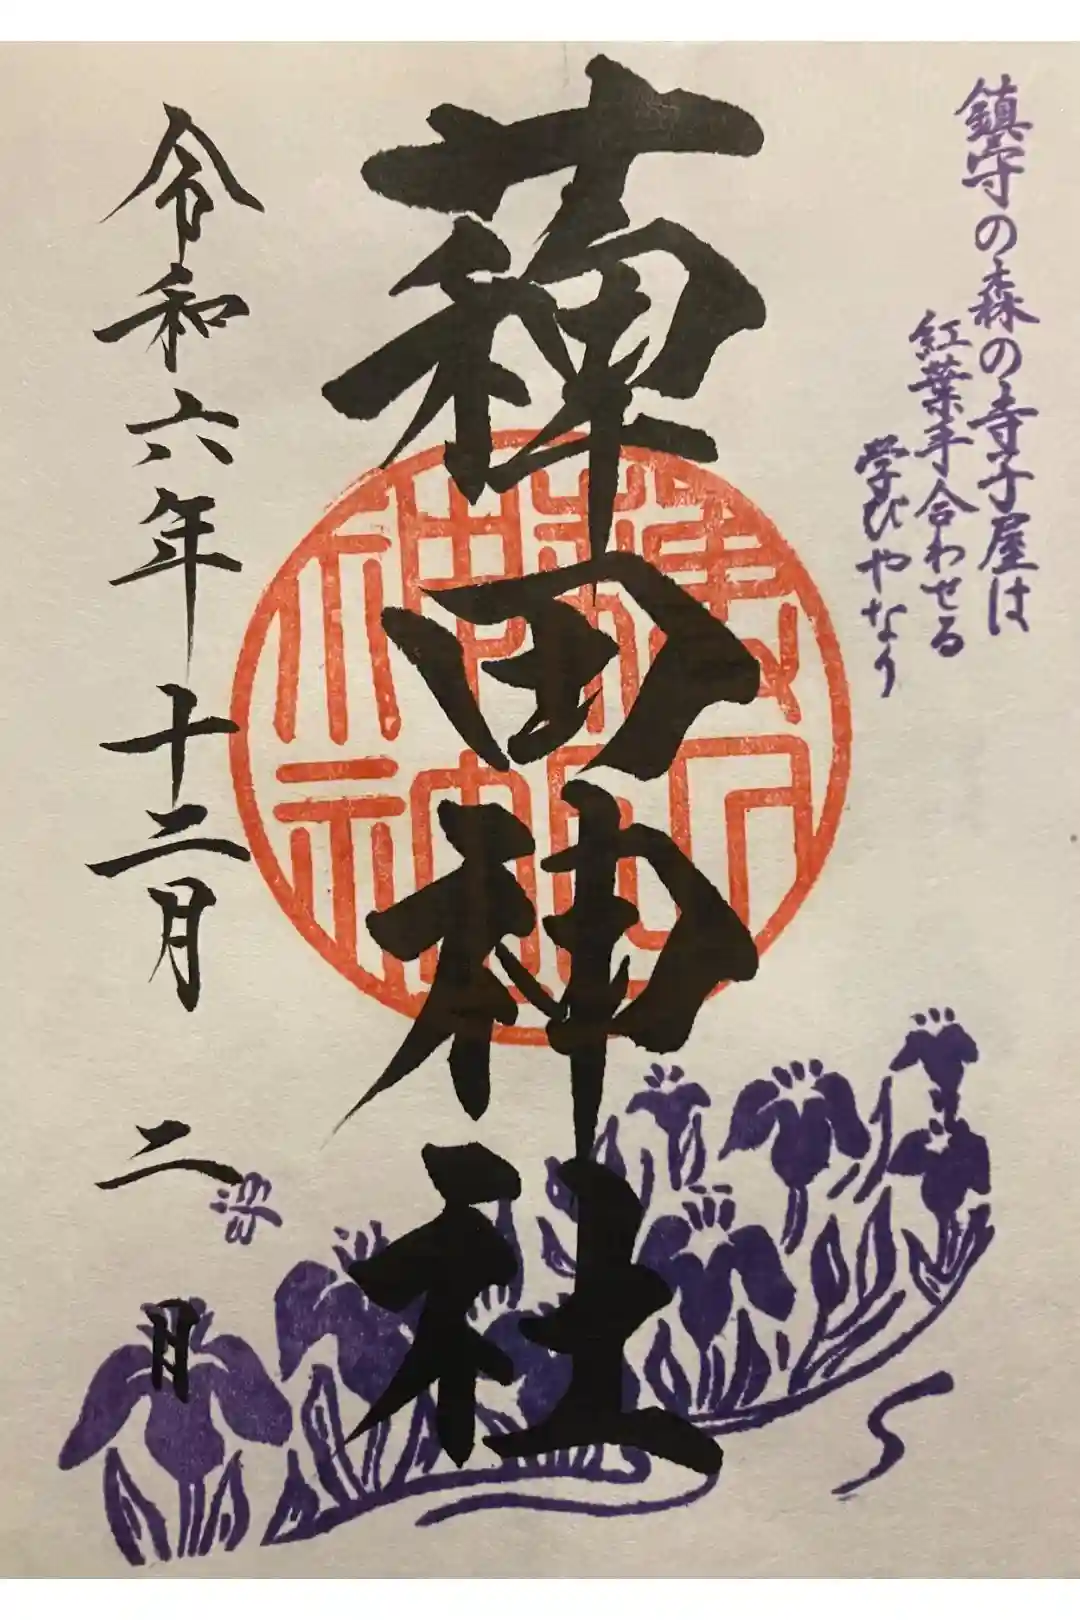 鎮守の森の寺子屋は
紅葉手合わせる
学びやなり
薭田神社
令和六年十二月二日